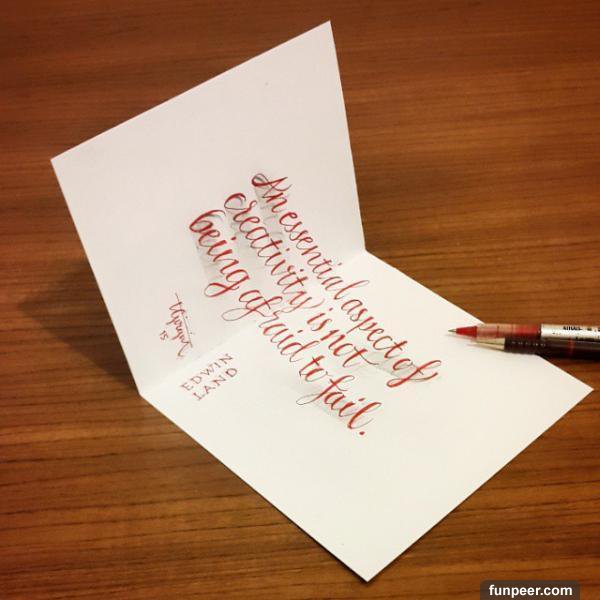 An essential aspect of
creativity is not
being afraid to fail.
15
EDWIN
LAND
funpeer.com